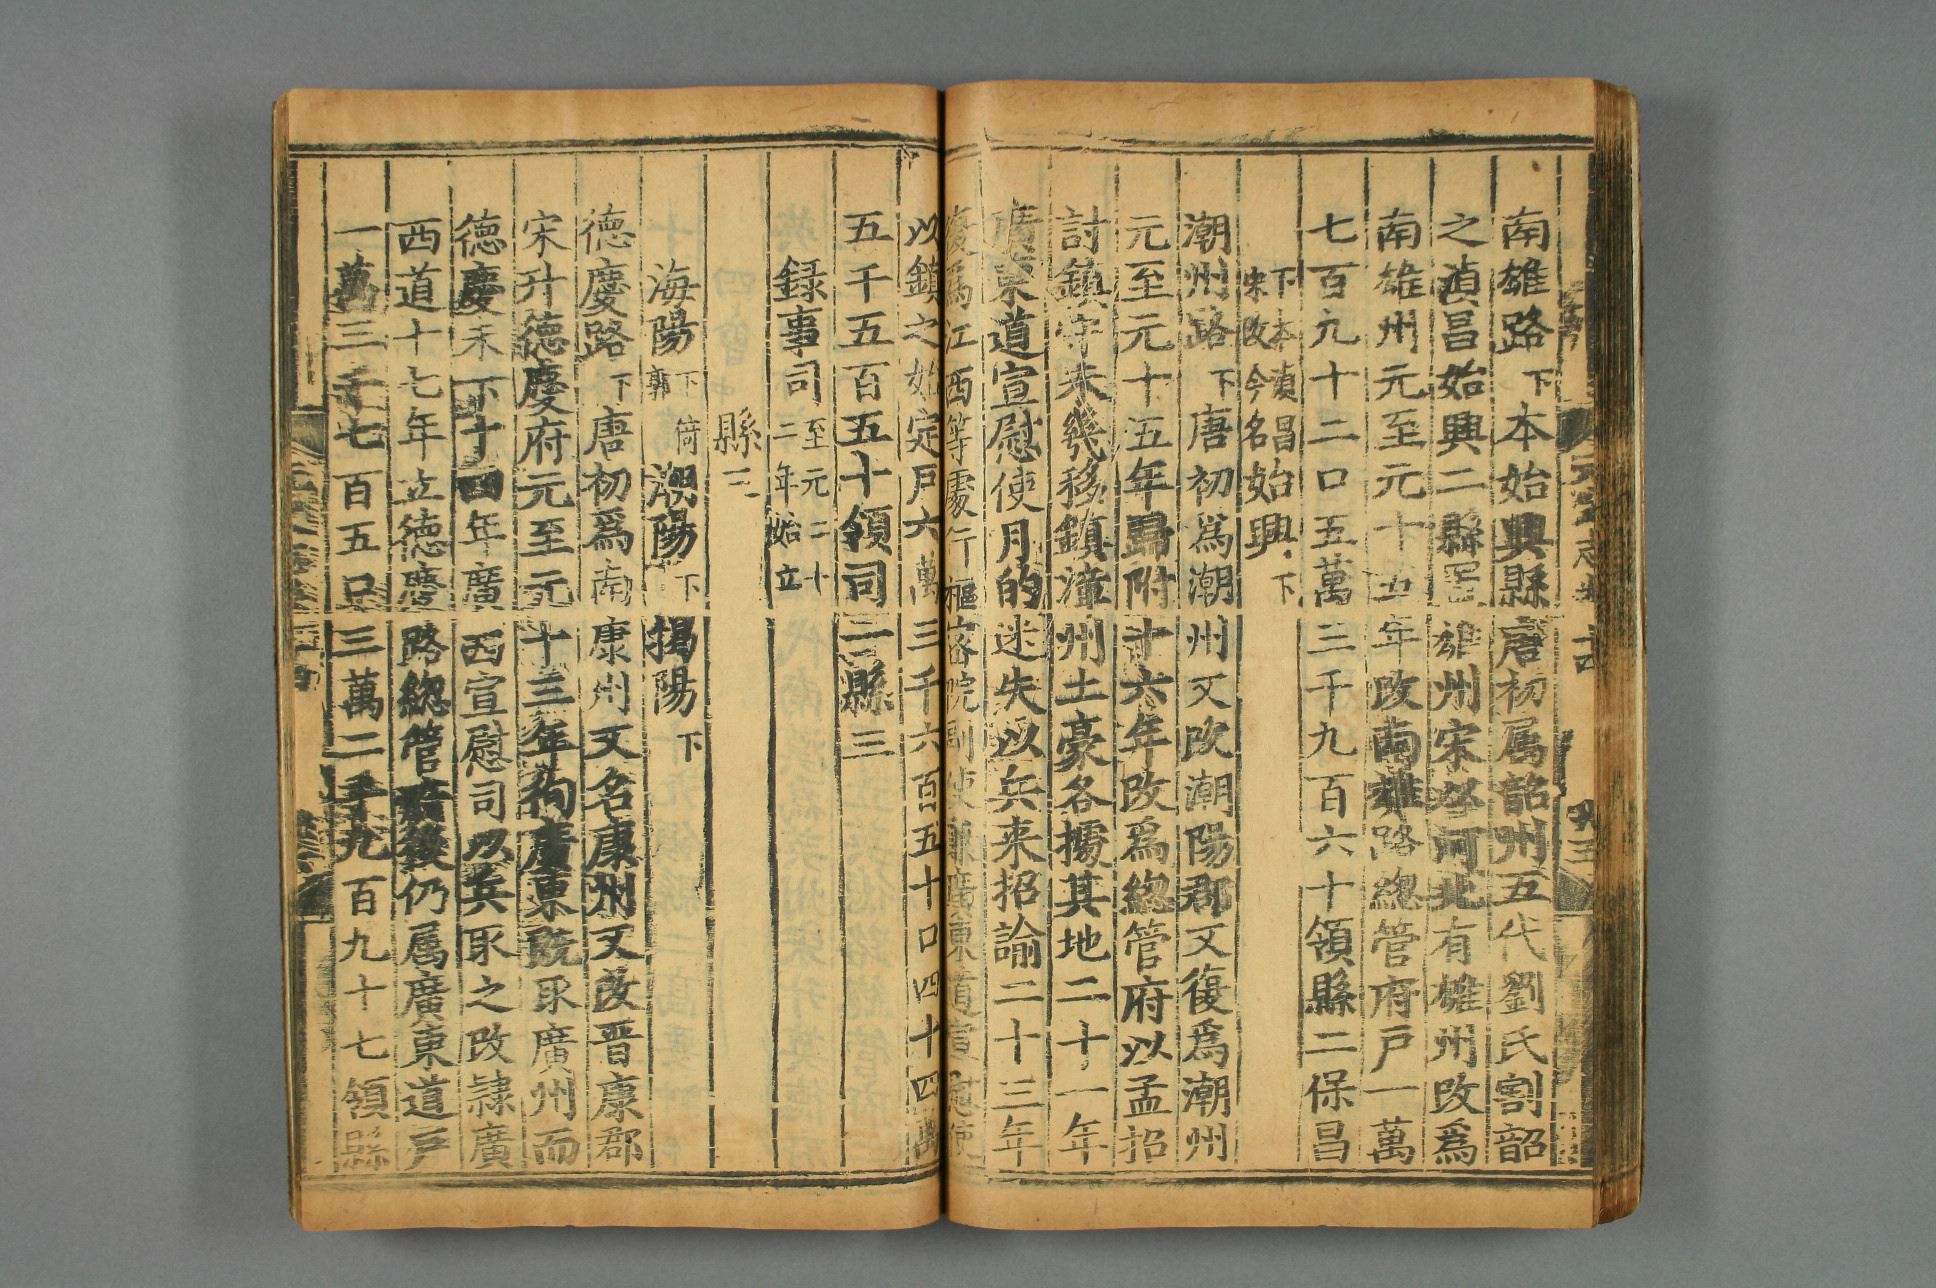 南雄路下本始興縣唐初属韶州五代劉氏割韶
之湞昌始興二縣置雄州宋以河北有雄州改爲
南雄州元至元十五年改南雄路總管府戸一萬
七百九十二口五萬三千九百六十領縣二保昌
下本湞昌宋改今名始興下
潮州路下唐初爲潮州又改潮陽郡又復爲潮州
元至元十五年歸附十六年改爲總管府以孟招
討鎮守未幾移鎮漳州土豪各據其地二十一年
廣東道宣慰使月的迷失以兵来招諭二十三年
復爲江西等處行樞密院副使兼廣東道宣慰使
以鎮之始定戸六萬三千六百五十口四十四萬
五千五百五十領司一縣三
録事司至元二十二年始立
縣三
海陽下倚郭潮陽下揭陽下
德慶路下唐初爲南康州又名康州又改晋康郡
宋升德慶府元至元十三年徇廣東旣取廣州而
德慶未下十四年廣西宣慰司以兵取之改隷廣
西道十七年立德慶路總管府後仍属廣東道戸
一萬三千七百五口三萬二千九百九十七領縣